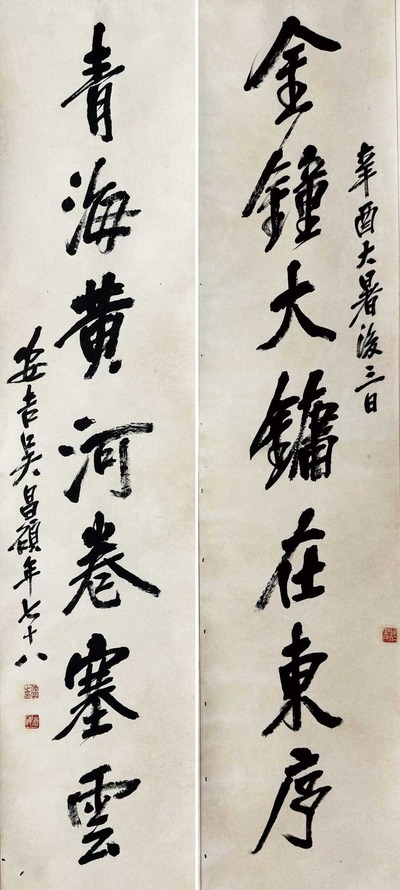 辛酉大暑後三日
金鐘大鏞在東序
青海黄河卷塞雲
安吉吳昌碩年七十八